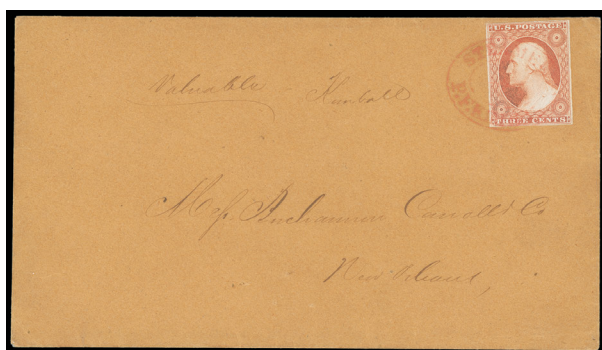 U.S. POSTAGE
THREE CENTS
Valuable Kimball
Mess. Buchannon Carroll & Co
New Orleans,